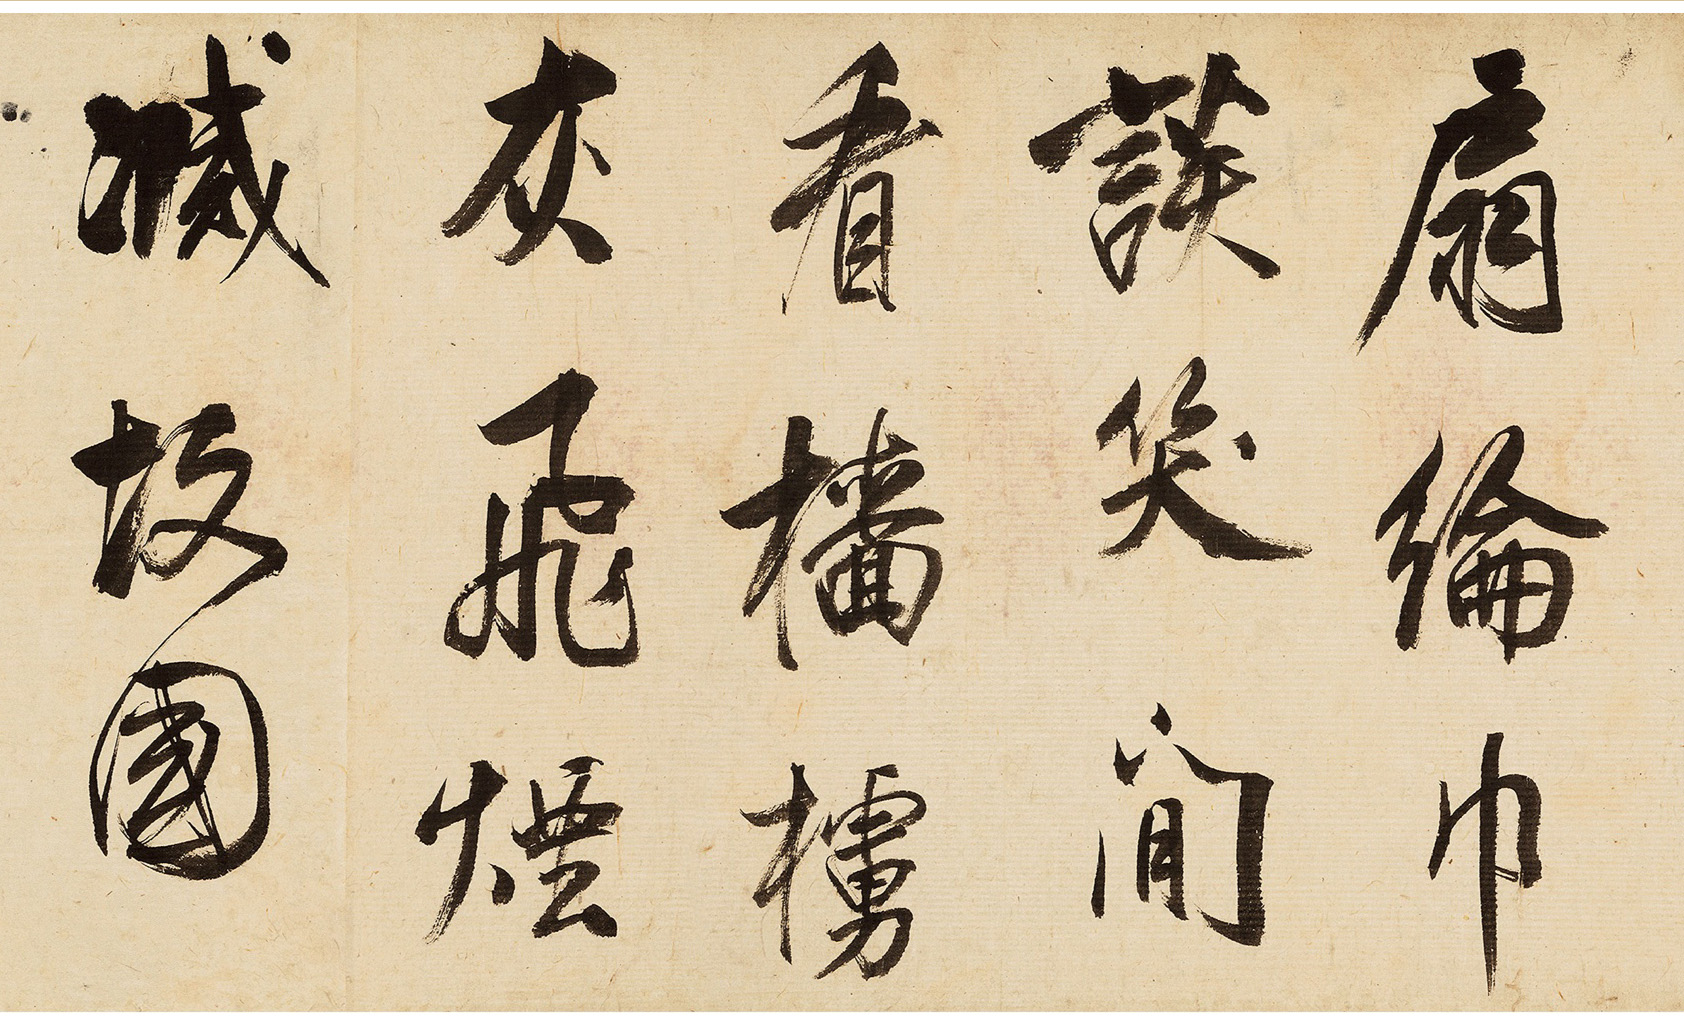 扇綸巾
談笑間
看檣櫓
灰飛煙
滅故國